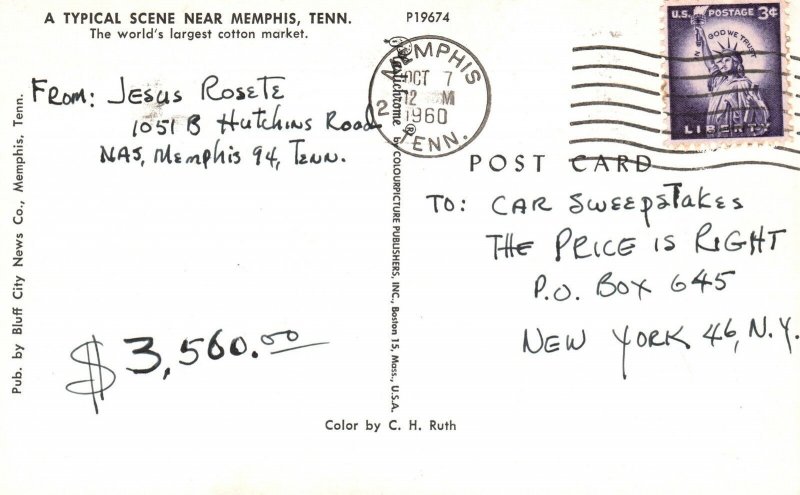 A TYPICAL SCENE NEAR MEMPHIS, TENN.
The world's largest cotton market.
P19674
FROM: JESUS ROSETE
1051 B Hutchins Road
NAS, Memphis 94, Tenn.
$ 3,560.00
Pub. by Bluff City News Co., Memphis, Tenn.
Plastichrome ® by COLOURPICTURE PUBLISHERS, INC., Boston 15, Mass., U.S.A.
MEMPHIS
OCT 7
12 M
2
1960
TENN.
U.S. POSTAGE 3¢
IN GOD WE TRUST
LIBERTY
POST CARD
TO: CAR SWEEPSTAKES
THE PRICE IS RIGHT
P.O. BOX 645
NEW YORK 46, N.Y.
Color by C. H. Ruth